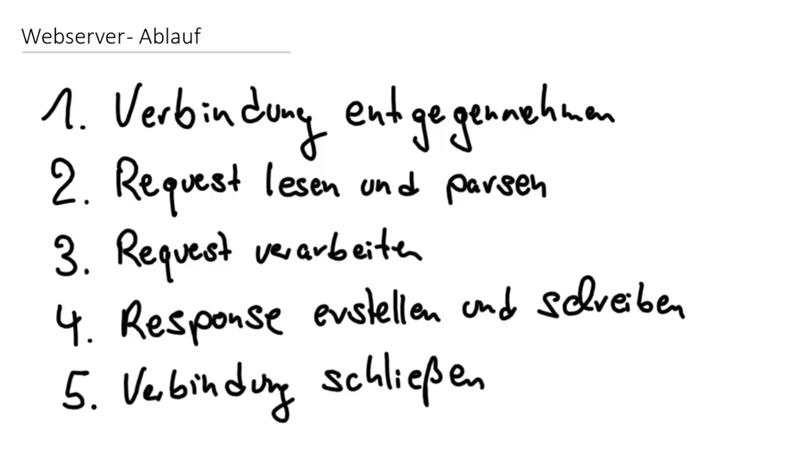 Webserver- Ablauf
1. Verbindung entgegennehmen
2. Request lesen und parsen
3. Request verarbeiten
4. Response erstellen und schreiben
5. Verbindung schließen